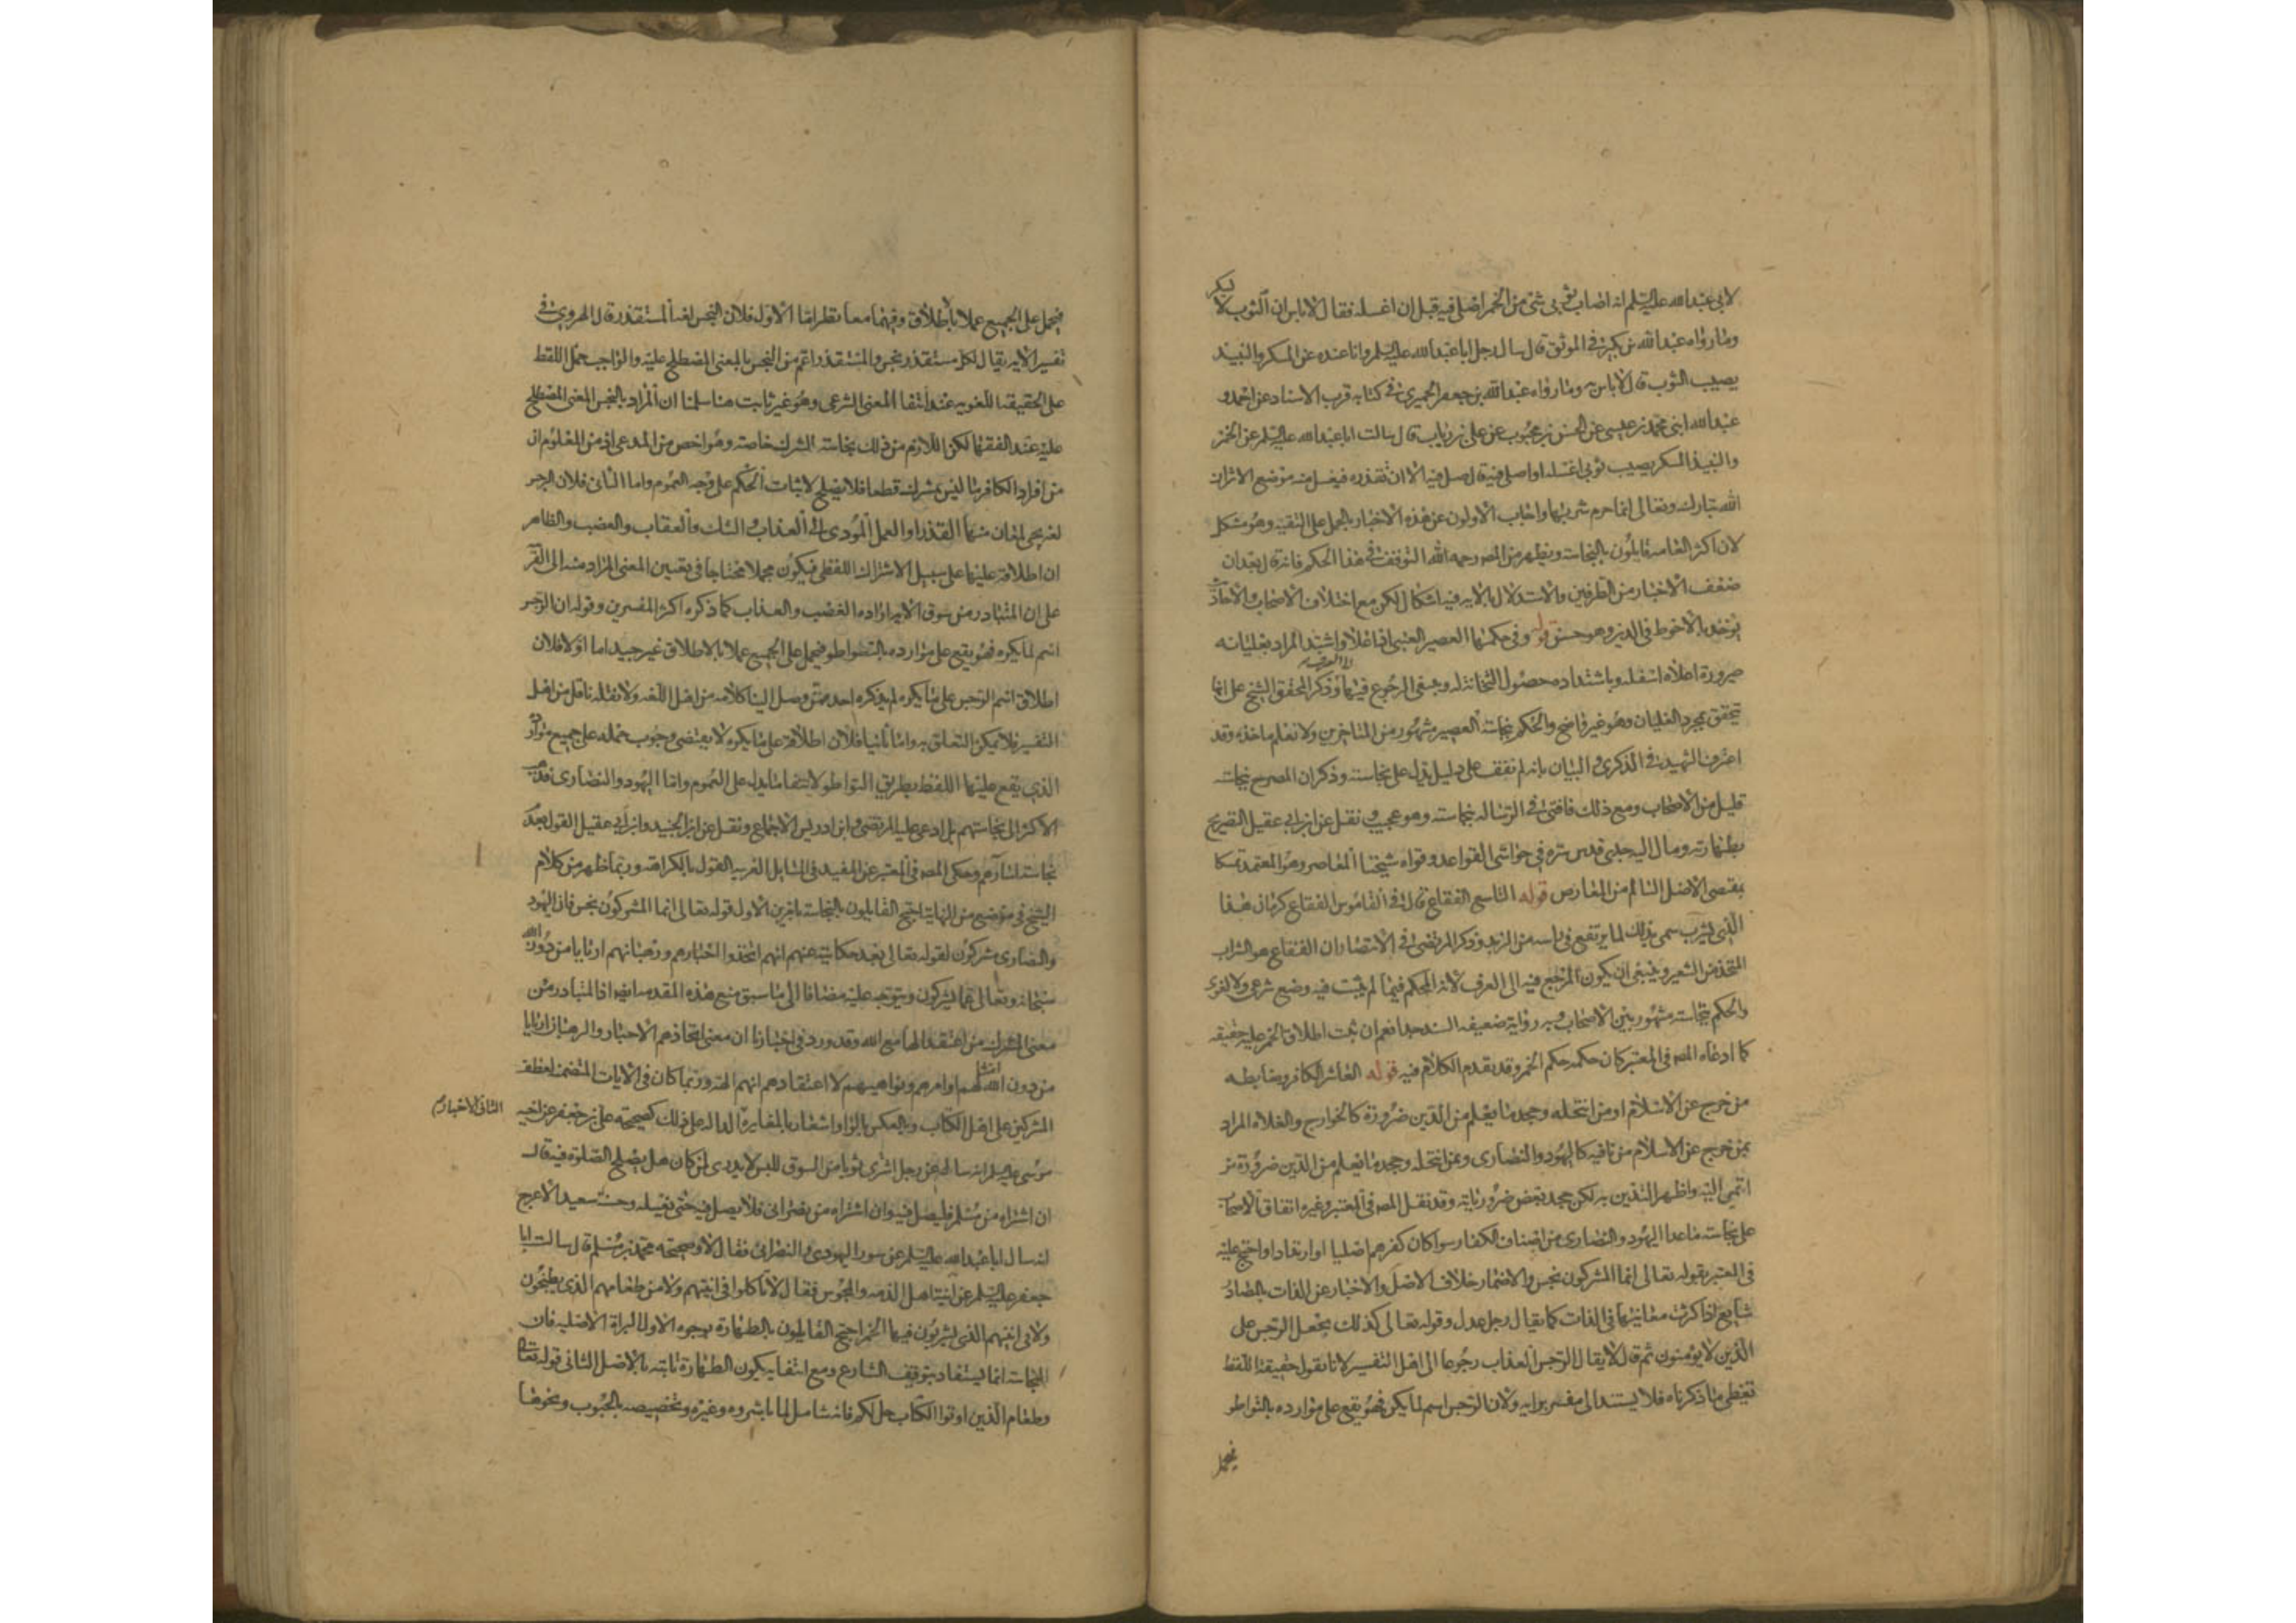 لابي عبد الله عليه السلم انه اصاب ثوبي شئ من الخمر اصلي فيه قبل ان اغسله فقال لا باس ان الثوب لا يسكر
وما رواه عبد الله بن بكير في الموثق قال سال رجل ابا عبد الله عليه السلم وانا عنده عن المسكر والنبيذ
يصيب الثوب قال لا باس به وما رواه عبد الله بن جعفر الحميري في كتابه قرب الاسناد عن احمد و
عبد الله ابني محمد بن عيسى عن الحسن بن محبوب عن علي بن رياب قال سالت ابا عبد الله عليه السلم عن الخمر
والنبيذ المسكر يصيب ثوبي اغسله او اصلي فيه قال صل فيه الا ان تقذره فيغسل منه موضع الاثر ان
الله تبارك وتعالى انما حرم شربها واجاب الاولون عن هذه الاخبار بالحمل على التقية وهو مشكل
لان اكثر العامه قايلون بالنجاسة ويظهر من المصه رحمه الله التوقف في هذا الحكم فانه قال بعد ان
ضعف الاخبار من الطرفين والاستدلال بالايه فيه اشكال لكن مع اختلاف الاصحاب والاحاديث
يوخذ بالاحوط في الدين وهو حسن قوله وفي حكمها العصير العنبي اذا غلا واشتد المراد بغليانه
صيرورة اعلاه اسفله وباشتداده حصول الثخانة له وينبغي الرجوع فيها الى العرف وذكر المحقق الشيخ علي انها
تتحقق بمجرد الغليان وهو غير واضح والحكم بنجاسة العصير مشهور بين المتاخرين ولا نعلم ماخذه وقد
اعترف الشهيد في الذكرى والبيان بانه لم نقف على دليل يدل على نجاسته وذكر ان المصرح بنجاسته
قليل من الاصحاب ومع ذلك فافتى في الرسالة بنجاسته وهو عجيب ونقل عن ابن ابي عقيل التصريح
بطهارته ومال اليه جدي قدس سره في حواشي القواعد وقواه شيخنا المعاصر وهو المعتمد تمسكا
بمقتضى الاصل السالم من المعارض قوله التاسع الفقاع قال في القاموس الفقاع كرمان هذا
الذي يشرب سمي بذلك لما يرتفع في راسه من الزبد وذكر المرتضى في الانتصار ان الفقاع هو الشراب
المتخذ من الشعير وينبغي ان يكون المرجع فيه الى العرف لانه المحكم فيما لم يثبت فيه وضع شرعي ولا لغوي
والحكم بنجاسته مشهور بين الاصحاب وبه رواية ضعيفه السند جدا نعم ان ثبت اطلاق الخمر عليه حقيقه
كما ادعاه المصه في المعتبر كان حكمه حكم الخمر وقد تقدم الكلام فيه قوله العاشر الكافر وضابطه
من خرج عن الاسلام او من انتحله وجحد ما يعلم من الدين ضرورة كالخوارج والغلاه المراد
بمن خرج عن الاسلام من نافيه كاليهود والنصارى وبمن انتحله وجحد ما يعلم من الدين ضرورة من
انتمى اليه واظهر التدين به لكن جحد بعض ضرورياته وقد نقل المصه في المعتبر وغيره اتفاق الاصحاب
على نجاسته ما عدا اليهود والنصارى من اصناف الكفار سوا كان كفرهم اصليا او ارتدادا واحتج عليه
في المعتبر بقوله تعالى انما المشركون نجس والاضمار خلاف الاصل والاخبار عن الذات بالمصادر
شايع اذا كثرت معانيها في الذات كما يقال رجل عدل وقوله تعالى كذلك يجعل الرجس على
الذين لا يومنون ثم قال لا يقال الرجس العذاب رجوعا الى اهل التفسير لانا نقول حقيقة اللفظ
تعطي ما ذكرناه فلا يستند الى مفسر برايه ولان الرجس اسم لما يكره فهو يقع على موارده بالتواطو
فيحمل
فيحمل على الجميع عملا بالاطلاق وفيهما معا نظر اما الاول فلان النجس لغة المستقذر قال الهروي في
تفسير الايه يقال لكل مستقذر نجس والمستقذر اعم من النجس بالمعنى المصطلح عليه والواجب حمل اللفظ
على الحقيقة اللغويه عند انتفا المعنى الشرعي وهو غير ثابت هنا سلمنا ان المراد بالنجس المعنى المصطلح
عليه عند الفقها لكن اللازم من ذلك نجاسة المشرك خاصة وهو اخص من المدعى اذ من المعلوم ان
من افراد الكافر ما ليس بمشرك قطعا فلا يصلح لاثبات الحكم على وجه العموم واما الثاني فلان الرجس
لغه يجي لمعان منها القذر والعمل المودي الى العذاب والشك والعقاب والغضب والظاهر
ان اطلاقه عليها على سبيل الاشتراك اللفظي فيكون مجملا محتاجا في تعيين المعنى المراد منه الى القرينة
على ان المتبادر من سوق الايه ارادة الغضب والعذاب كما ذكره اكثر المفسرين وقوله ان الرجس
اسم لما يكره فهو يقع على موارده بالتواطو فيحمل على الجميع عملا بالاطلاق غير جيد اما اولا فلان
اطلاق اسم الرجس على ما يكره لم يذكره احد ممن وصل الينا كلامه من اهل اللغه ولا نقله ناقل من اهل
التفسير فلا يمكن التعلق به واما ثانيا فلان اطلاقه على ما يكره لا يقتضي وجوب حمله على جميع موارده
الذي يقع عليها اللفظ بطريق التواطو لانتفا ما يدل على العموم واما اليهود والنصارى فذهب
الاكثر الى نجاستهم بل ادعى عليه المرتضى وابن ادريس الاجماع ونقل عن ابن الجنيد وابن ابي عقيل القول بعدم
نجاسة اسآرهم وحكى المصه في المعتبر عن المفيد في المسايل الغريه القول بالكراهة وربما ظهر من كلام
الشيخ في موضع من النهاية احتج القايلون بالنجاسة بامرين الاول قوله تعالى انما المشركون نجس فان اليهود
والنصارى مشركون لقوله تعالى بعد حكايته عنهم انهم اتخذوا احبارهم ورهبانهم اربابا من دون الله
سبحانه وتعالى عما يشركون ويتوجه عليه مضافا الى ما سبق منع هذه المقدمه ايضا اذ المتبادر من
معنى المشرك من اعتقد الها مع الله وقد ورد في اخبارنا ان معنى اتخاذهم الاحبار والرهبان اربابا
من دون الله امتثالهم اوامرهم ونواهيهم لا اعتقادهم انهم الهه وربما كان في الايات المتضمنة لعطف
المشركين على اهل الكتاب وبالعكس بالواو اشعار بالمغايرة الداله على ذلك كصحيحة علي بن جعفر عن اخيه
الثاني الاخبار
موسى عليه السلم انه ساله عن رجل اشترى ثوبا من السوق للبس لا يدري لمن كان هل يصلح الصلوة فيه قال
ان اشتراه من مسلم فليصل فيه وان اشتراه من نصراني فلا يصل فيه حتى يغسله وحسنة سعيد الاعرج
انه سال ابا عبد الله عليه السلم عن سور اليهودي والنصراني فقال لا وصحيحة محمد بن مسلم قال سالت ابا
جعفر عليه السلم عن انية اهل الذمه والمجوس فقال لا تاكلوا في انيتهم ولا من طعامهم الذي يطبخون
ولا في انيتهم الذي يشربون فيها الخمر احتج القايلون بالطهارة بوجوه الاول البراة الاصليه فان
النجاسة انما يستفاد بتوقيف الشارع ومع انتفايه يكون الطهارة ثابته بالاصل الثاني قوله تعالى
وطعام الذين اوتوا الكتاب حل لكم فانه شامل لما باشروه وغيره وتخصيصه بالحبوب ونحوها